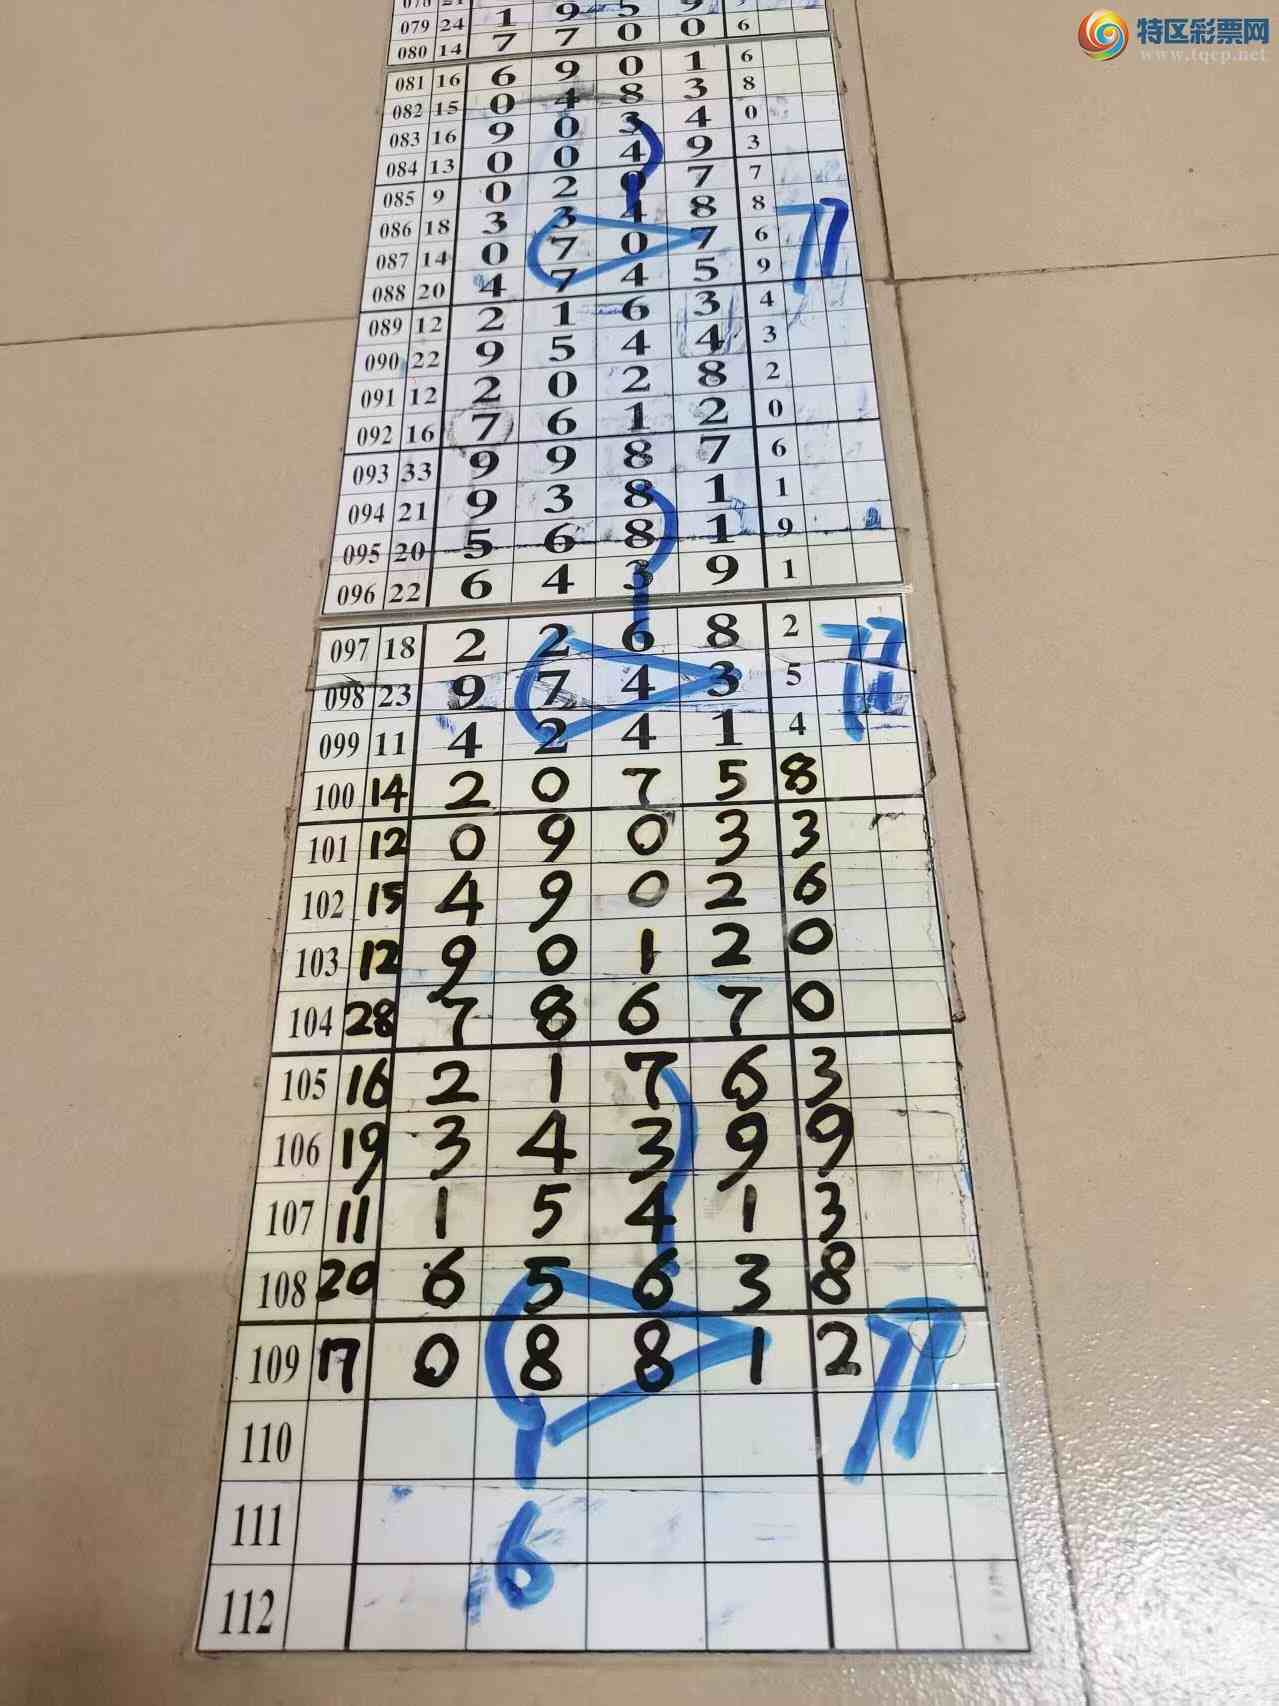 特区彩票网
www.tqcp.net
079 24 1 9 5 9
080 14 7 7 0 0 6
081 16 6 9 0 1 6
082 15 0 4 8 3 8
083 16 9 0 3 4 0
084 13 0 0 4 9 3
085 9 0 2 0 7 7
086 18 3 3 4 8 8
087 14 0 7 0 7 6
088 20 4 7 4 5 9
089 12 2 1 6 3 4
090 22 9 5 4 4 3
091 12 2 0 2 8 2
092 16 7 6 1 2 0
093 33 9 9 8 7 6
094 21 9 3 8 1 1
095 20 5 6 8 1 9
096 22 6 4 3 9 1
097 18 2 2 6 8 2
098 23 9 7 4 3 5
099 11 4 2 4 1 4
100 14 2 0 7 5 8
101 12 0 9 0 3 3
102 15 4 9 0 2 6
103 12 9 0 1 2 0
104 28 7 8 6 7 0
105 16 2 1 7 6 3
106 19 3 4 3 9 9
107 11 1 5 4 1 3
108 20 6 5 6 3 8
109 17 0 8 8 1 2
110
111
6
112